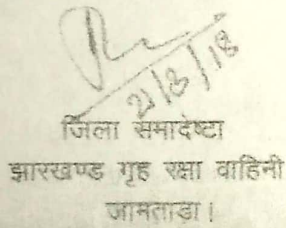 21/8/18
जिला समादेष्टा
झारखण्ड गृह रक्षा वाहिनी
जामताड़ा।